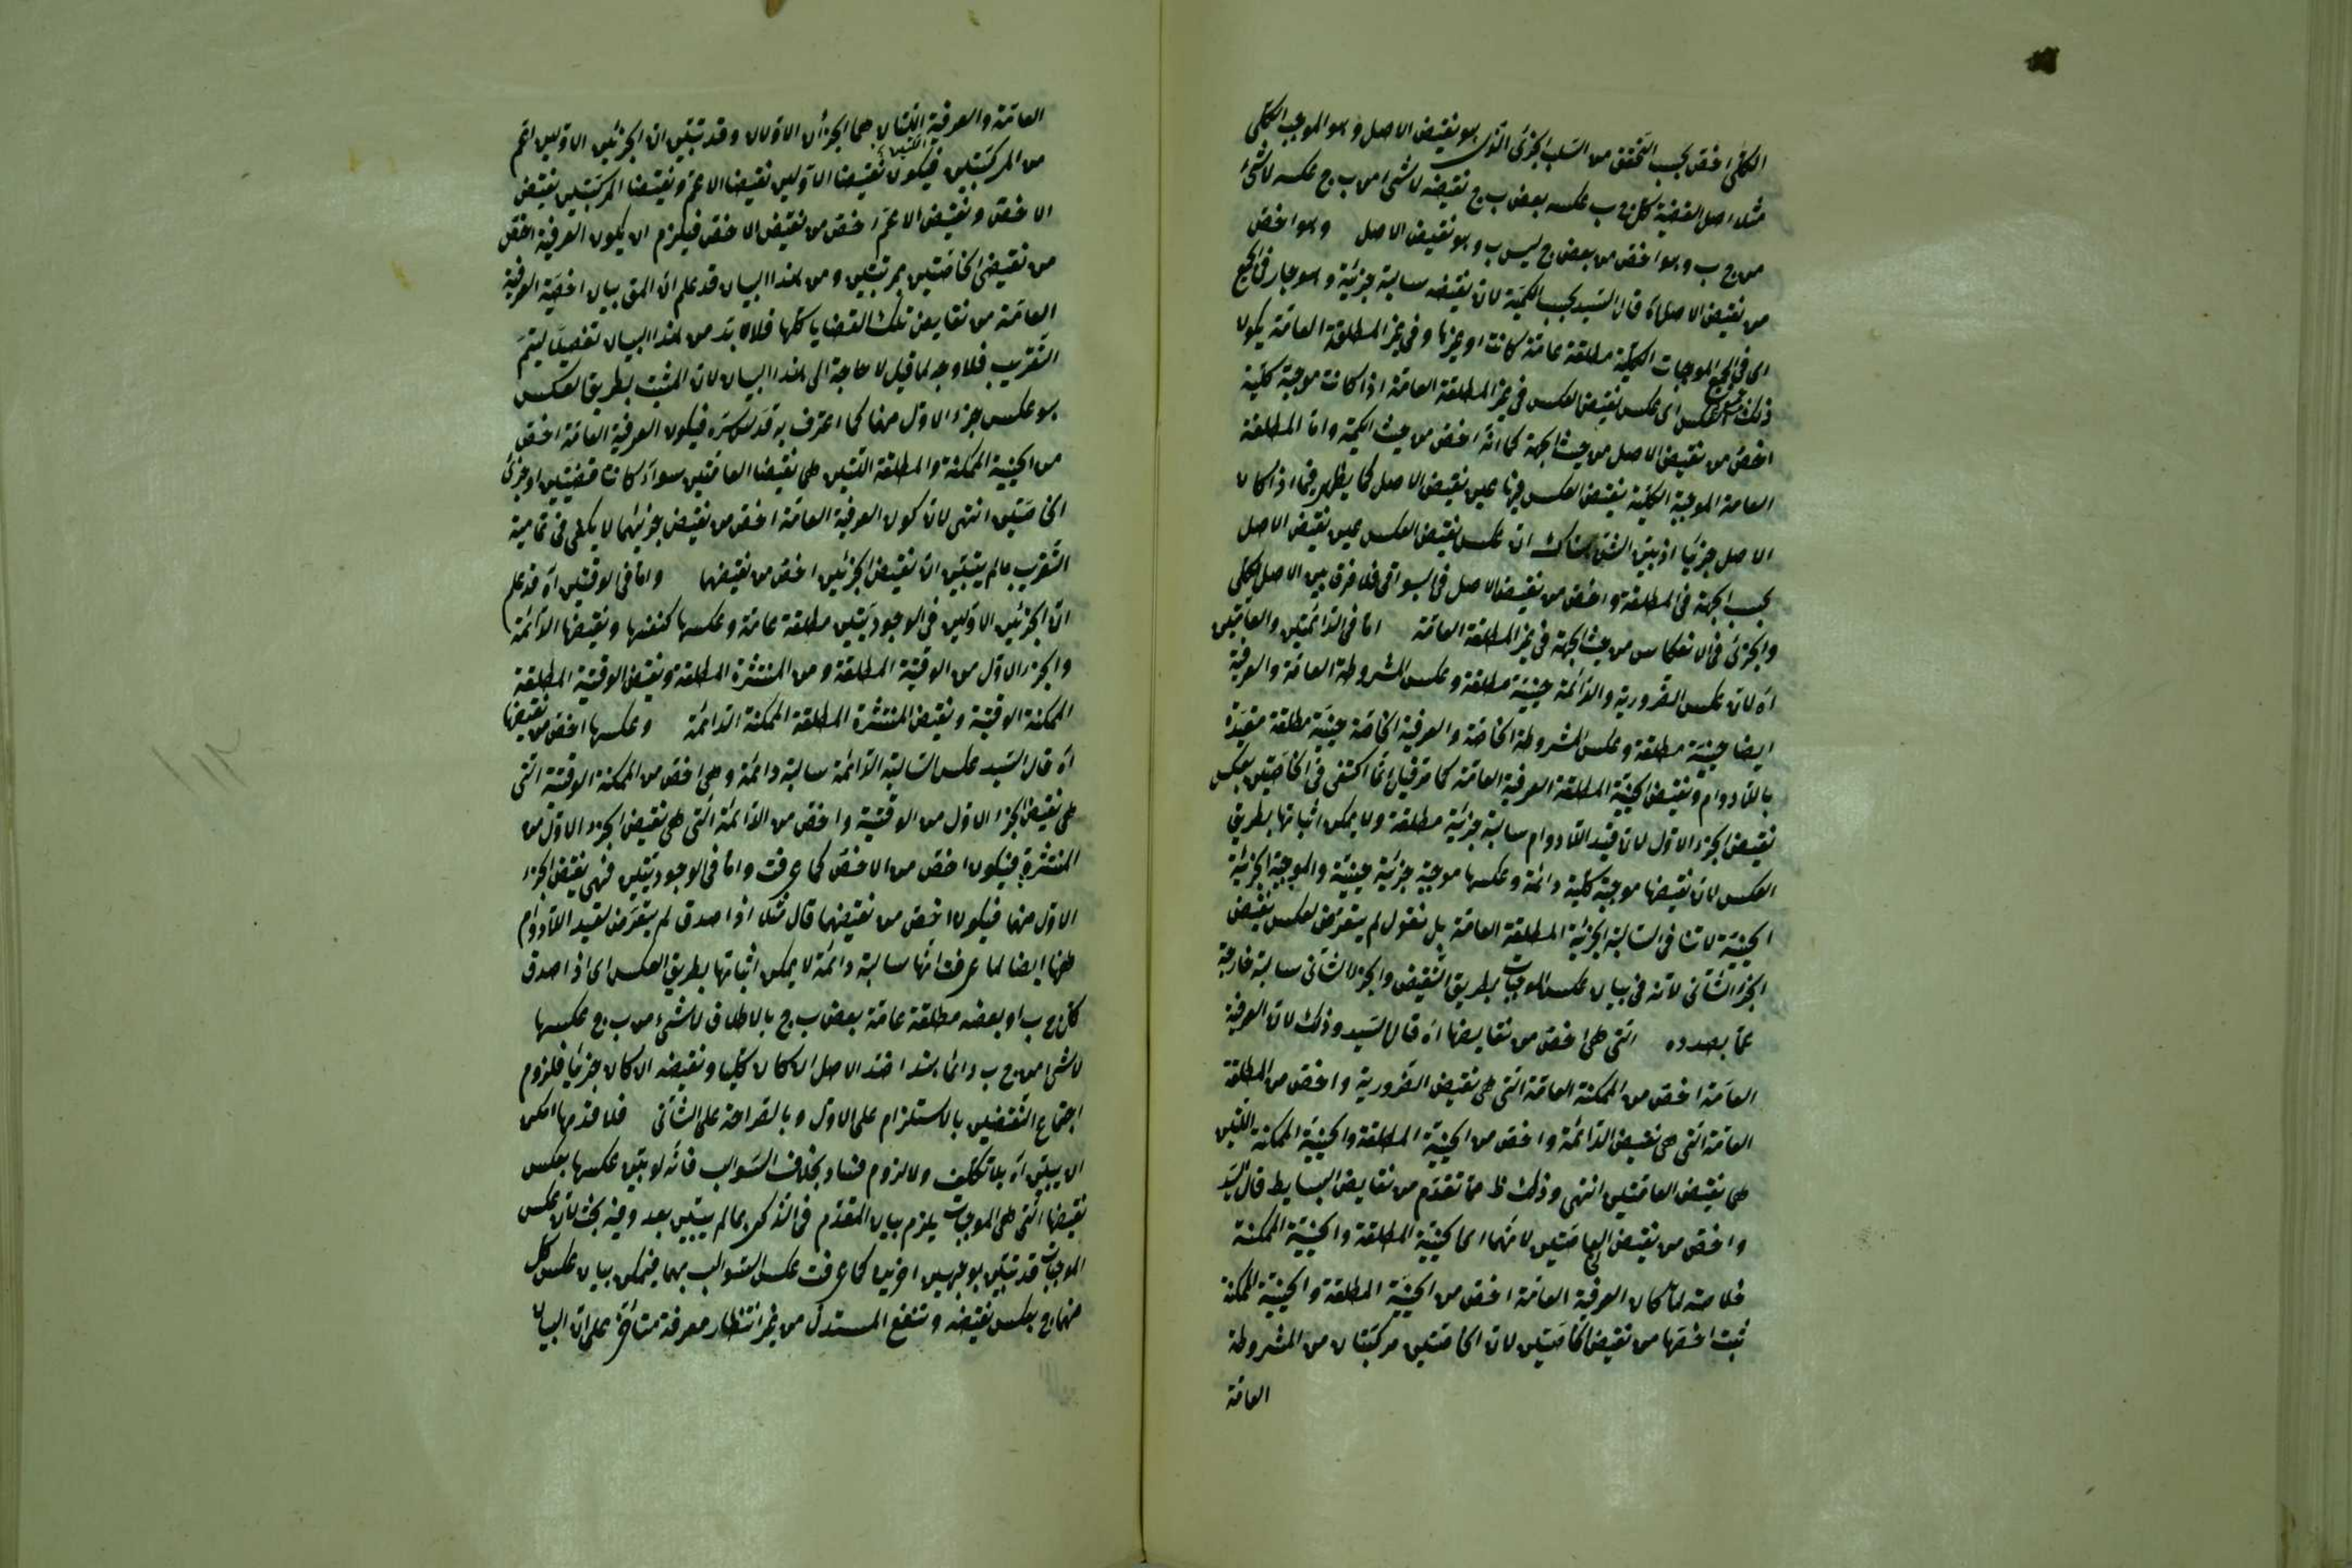 الكلى اخص بحسب التحقق من السلب الجزئى الذى هو نقيض الاصل وهو الموجب الكلى
مثلا اصل القضية كل ج ب عكسه بعض ب ج نقيضه لا شئ من ب ج عكسه لا شئ
من ج ب وهو اخص من بعض ج ليس ب وهو نقيض الاصل وهو اخص
من نقيض الاصل اه قال السيد بحسب الكمية لان نقيضه سالبة جزئية وهو جار فى الجميع
اى فى جميع الموجبات الكلية مطلقة عامة كانت او غيرها وفى غير المطلقة العامة يكون
ذلك العكس اى عكس نقيض العكس فى غير المطلقة العامة اذا كانت موجبة كلية
اخص من نقيض الاصل من حيث الجهة كما انه اخص من حيث الكمية واما المطلقة
العامة الموجبة الكلية نقيض العكس فيها عين نقيض الاصل كما يظهر فيما اذا كان
الاصل جزئيا اذ بين الشق هناك ان عكس نقيض العكس عين نقيض الاصل
بحسب الجهة فى المطلقة واخص من نقيض الاصل فى البواقى فلا فرق بين الاصل الكلى
والجزئى فى الانعكاس من حيث الجهة فى غير المطلقة العامة اما فى الدائمتين والعامتين
اه لان عكس الضرورية والدائمة حينية مطلقة وعكس المشروطة العامة والعرفية
ايضا حينية مطلقة وعكس المشروطة الخاصة والعرفية الخاصة حينية مطلقة مقيدة
باللادوام ونقيض الحينية المطلقة العرفية العامة كما مر قيل انما اكتفى فى الخاصتين بعكس
نقيض الجزء الاول لان قيد اللادوام سالبة جزئية مطلقة ولا يمكن اثباتها بطريق
العكس لان نقيضها موجبة كلية دائمة وعكسها موجبة جزئية حينية والموجبة الجزئية
الحينية لا تنافى السالبة الجزئية المطلقة العامة بل نقول لم يتعرض لعكس نقيض
الجزء الثانى لانه فى بيان عكس الموجبات بطريق النقيض والجزء الثانى سالبة خارجة
عما بصدده التى هى اخص من نقايضها اه قال السيد وذلك لان العرفية
العامة اخص من الممكنة العامة التى هى نقيض الضرورية واخص من المطلقة
العامة التى هى نقيض الدائمة واخص من الحينية المطلقة والحينية الممكنة اللتين
هى نقيض العامتين انتهى وذلك ظ مما تقدم من نقايض البسايط قال السيد
واخص من نقيض الخاصتين لانهما اى الحينية المطلقة والحينية الممكنة
خلاصته لما كان العرفية العامة اخص من الحينية المطلقة والحينية الممكنة
ثبت اخصها من نقيض الخاصتين لان الخاصتين مركبتان من المشروطة
العامة
العامة والعرفية اللتان هما الجزأن الاولان وقد تبين ان الجزئين الاولين اعم
من المركبتين فيكون نقيضا الاولين نقيضا الاعم ونقيضا المركبتين نقيض
الاخص ونقيض الاعم اخص من نقيض الاخص فيلزم ان يكون العرفية اخص
من نقيضى الخاصتين بمرتبتين ومن هذا البيان قد علم ان المق بيان اخصية العرفية
العامة من نقايض تلك القضايا كلها فلا بد من هذا البيان تفصيلا ليتم
التقريب فلا وجه لما قيل لا حاجة الى هذا البيان لان المثبت بطريق العكس
هو عكس جزء الاول منها كما اعترف به قدس سره فيكون العرفية العامة اخص
من الحينية الممكنة والمطلقة اللتين هى نقيضا العامتين سواء كانتا قضيتين او جزئى
الخاصتين انتهى لان كون العرفية العامة اخص من نقيض جزئيهما لا يكفى فى تمامية
التقريب ما لم يتبين ان نقيض الجزئين اخص من نقيضها واما فى الوقتيتين اه قد علم
ان الجزئين الاولين فى الوجوديتين مطلقة عامة وعكسها كنفسها ونقيضها الدائمة
والجزء الاول من الوقتية المطلقة ومن المنتشرة المطلقة ونقيض الوقتية المطلقة
الممكنة الوقتية ونقيض المنتشرة المطلقة الممكنة الدائمة وعكسها اخص من نقيضها
اه قال السيد عكس السالبة الدائمة سالبة دائمة وهى اخص من الممكنة الوقتية التى
هى نقيض الجزء الاول من الوقتية واخص من الدائمة التى هى نقيض الجزء الاول من
المنتشرة فيكون اخص من الاخص كما عرفت واما فى الوجوديتين فهى نقيض الجزء
الاول منهما فيكون اخص من نقيضهما قال مثلا اذا صدق لم يتعرض لقيد اللادوام
ههنا ايضا لما عرفت انها سالبة دائمة لا يمكن اثباتها بطريق العكس اى اذا صدق
كل ج ب او بعضه مطلقة عامة بعض ب ج بالاطلاق لا شئ من ب ج عكسها
لا شئ من ج ب دائما هذا ضد الاصل ان كان كليا ونقيضه ان كان جزئيا فلزوم
اجتماع النقيضين بالاستلزام على الاول وبالصراحة على الثانى فلا قدمها امكن
ان يبين اه بلا تكلف ولا لزوم فساد بخلاف السوالب فانه لو بين عكسها بعكس
نقيضها التى هى الموجبات يلزم بيان المقدم فى الذكر بما لم يتبين بعد وفيه بحث لان عكس
الموجبات قد تبين بوجهين اخرين كما عرفت عكس السوالب بهما فيمكن بيان عكس كل
منهما ج بعكس نقيضه وتنفع المستدل من غير انتظار معرفة متاخر على ان البيان